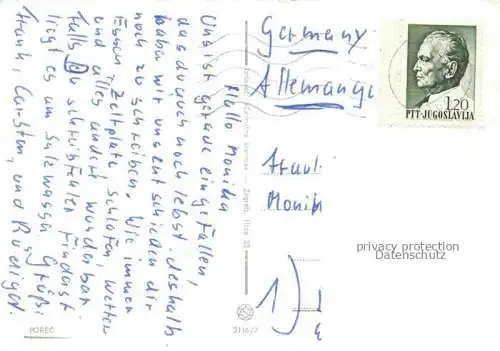 Hallo Monika
Uns ist gerade eingefallen,
das du auch noch lebst. deshalb
haben wir uns entschieden dir
noch zu schreiben. Wie immer
Essen, Zeltplatz, schlafen, Wetter
und alles andere wunderbar
Falls Du schreibfehler findest
liegt es am Salzwasser Grüße
Frank, Carsten, und Rüdiger.
POREČ
21 16/7
Germany
Allemange
1.20
PTT-JUGOSLAVIJA
Fraul
Monik
1)
privacy protection
Datenschutz